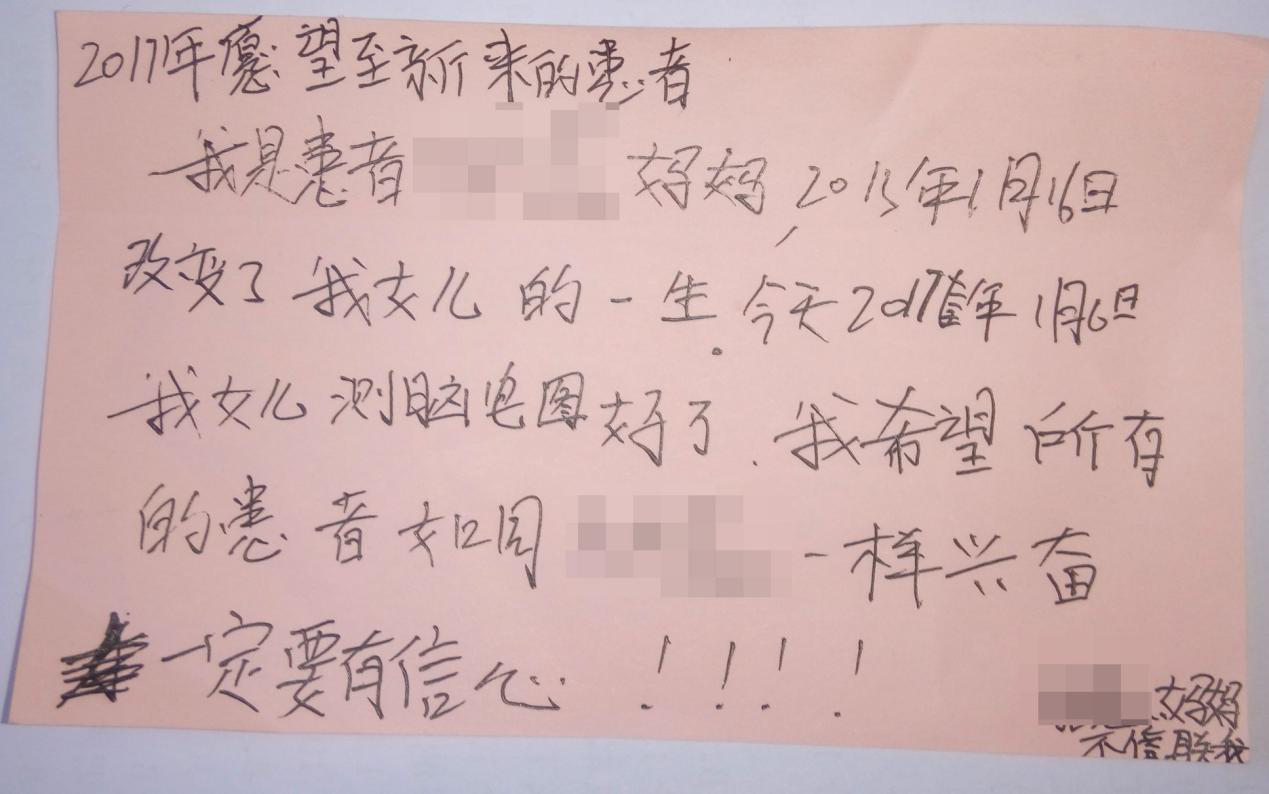 2017年愿望至新来的患者
我是患者 妈妈,2015年1月16日
改变了我女儿的一生.今天2017年1月6日
我女儿测脑电图好了.我希望所有
的患者如同 一样兴奋
一定要有信心!!!!
妈妈
不信联我